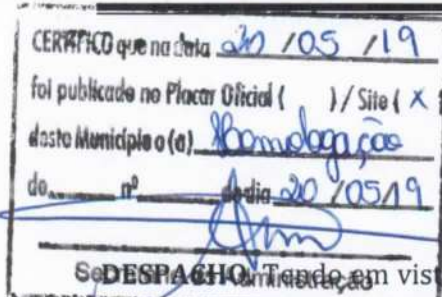 CERTIFICO que na data 20 / 05 / 19
foi publicado no Placar Oficial ( ) / Site ( X
deste Município o (a) Homologação
do nº do dia 20 / 05 / 19
DESPACHO. Tendo em vis
Administração